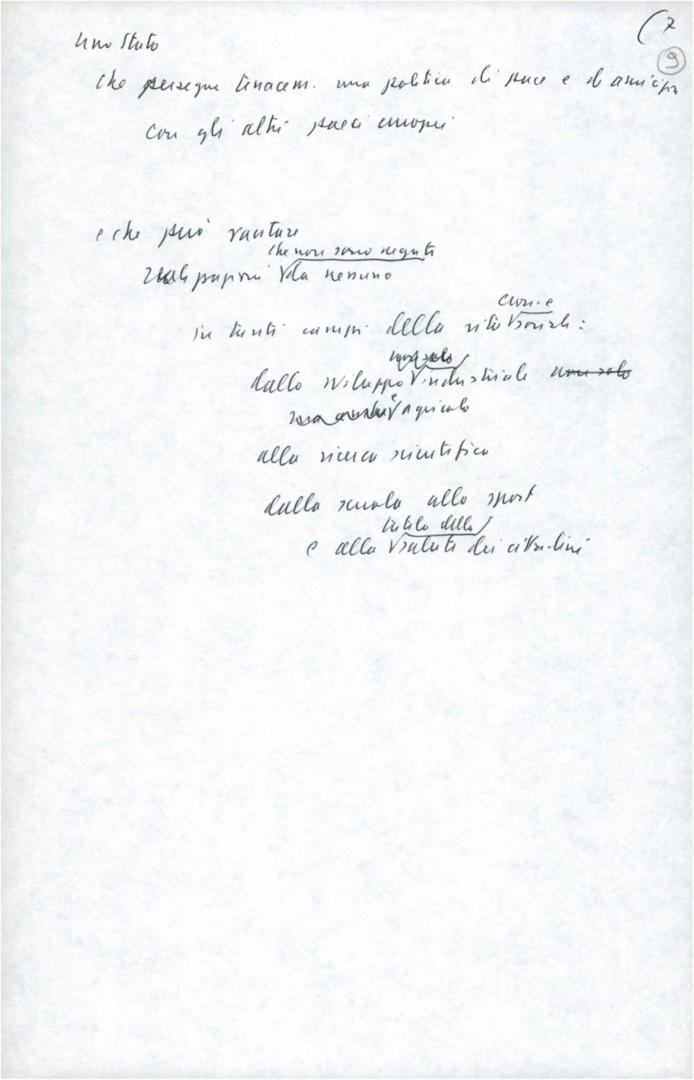 (7
9
Uno Stato
che persegue tenacem. una politica di pace e di amicizia
con gli altri paesi europei
e che può vantare
che non sono negati
reali progressi da nessuno
civile
in tanti campi della vita sociale:
non solo
dallo sviluppo industriale non solo
ma anche agricolo
alla ricerca scientifica
dalla scuola allo sport
tutela della
e alla salute dei cittadini